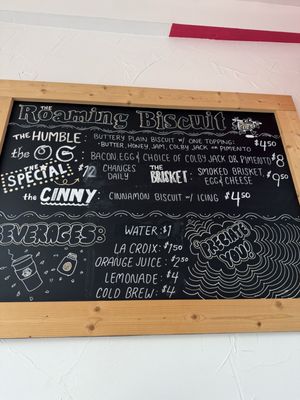 THE
Roaming Biscuit
THE HUMBLE: BUTTERY PLAIN BISCUIT W/ ONE TOPPING:
-BUTTER, HONEY, JAM, COLBY JACK OR PIMENTO $4.50
the O.G. BACON, EGG & CHOICE OF COLBY JACK OR PIMENTO $8
THE SPECIAL: $12 CHANGES DAILY THE BRISKET: SMOKED BRISKET, EGG & CHEESE $9.50
the CINNY: CINNAMON BISCUIT W/ ICING $4.50
BEVERAGES
WATER: $1
LA CROIX: $1.50
ORANGE JUICE: $2.50
LEMONADE: $4
COLD BREW: $4
"JESUS LOVES YOU!"